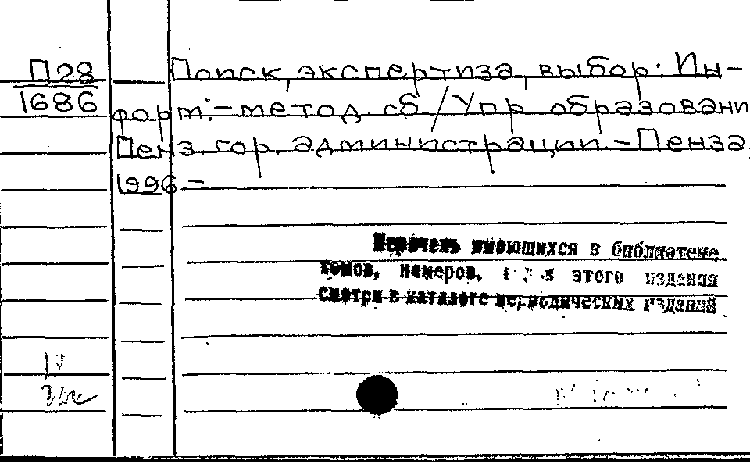 П28
1686
Поиск, экспертиза, выбор: Ин-
форм.-метод сб / Упр образовани
Пенз. гор. администрации. - Пенза,
1996 -
Перечень имеющихся в библиотеке
томов, номеров, этого издания
смотри в каталоге периодических изданий